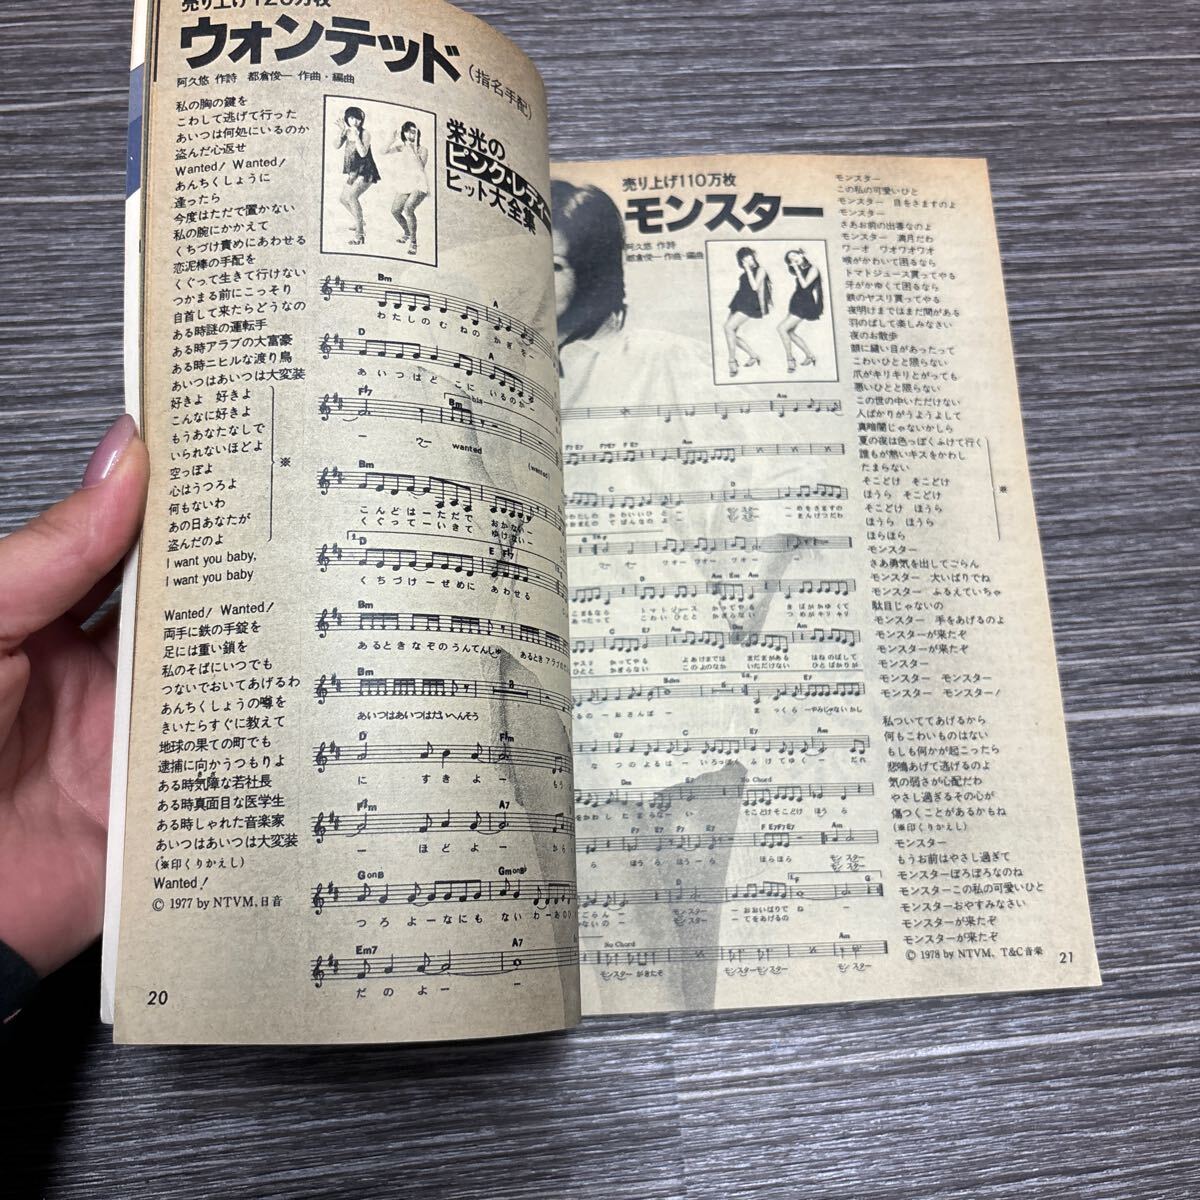 売り上げ120万枚
ウォンテッド
(指名手配)
阿久悠 作詩 都倉俊一 作曲・編曲
栄光の
ピンク・レディー
ヒット大全集
私の胸の鍵を
こわして逃げて行った
あいつは何処にいるのか
盗んだ心返せ
Wanted! Wanted!
あんちくしょうに
逢ったら
今度はただで置かない
私の腕にかかえて
くちづけ責めにあわせる
恋泥棒の手配を
くぐって生きて行けない
つかまる前にこっそり
自首して来たらどうなの
ある時謎の運転手
ある時アラブの大富豪
ある時ニヒルな渡り鳥
あいつはあいつは大変装
好きよ 好きよ
こんなに好きよ
もうあなたなしで
いられないほどよ
空っぽよ
心はうつろよ
何もないわ
あの日あなたが
盗んだのよ
I want you baby,
I want you baby
※
Wanted! Wanted!
両手に鉄の手錠を
足には重い鎖を
私のそばにいつでも
つないでおいてあげるわ
あんちくしょうの噂を
きいたらすぐに教えて
地球の果ての町でも
逮捕に向かうつもりよ
ある時気障な若社長
ある時真面目な医学生
ある時しゃれた音楽家
あいつはあいつは大変装
(※印くりかえし)
Wanted!
© 1977 by NTVM, 日音
20
Bm A
わたしのむ ねの かぎを ー
D A
あいつはど こに いるのか ー
F♯7 Bm
wanted (wanted)
Bm
こんどは ー ただで おかない ー
くぐって ー いきて ゆけない ー
1. D E F♯7
くちづけ ー せめに あわせる
Bm
あるとき なぞの うんてんしゅ あるとき アラブの
Bm B
あいつはあいつはだいへんそう
D F♯m
に すきよ ー もう
F♯m A7
ー ほどよ ー から
GonB GmonB♭
つろ よ ー なにも ない わ ー あのひ
Em7 A7
だのよ ー ー
売り上げ110万枚
モンスター
阿久悠 作詩
都倉俊一 作曲・編曲
モンスター
この私の可愛いひと
モンスター 目をさますのよ
モンスター
さあお前の出番なのよ
モンスター 満月だわ
ワーオ ワオワオワオ
喉がかわいて困るなら
トマトジュース買ってやる
牙がかゆくて困るなら
鉄のヤスリ買ってやる
夜明けまではまだ間がある
羽のばして楽しみなさい
夜のお散歩
顔に縫い目があったって
こわいひとと限らない
爪がキリキリとがっても
悪いひとと限らない
この世の中いただけない
人ばかりがうようよして
真暗闇じゃないかしら
夏の夜は色っぽくふけて行く
誰もが熱いキスをかわし
たまらない
そこどけ そこどけ
ほうら そこどけ
そこどけ ほうら
ほうら ほうら
ほらほら
※
モンスター
さあ勇気を出してごらん
モンスター 大いばりでね
モンスター ふるえていちゃ
駄目じゃないの
モンスター 手をあげるのよ
モンスターが来たぞ
モンスターが来たぞ
モンスター
モンスター モンスター
モンスター モンスター!
私ついててあげるから
何もこわいものはない
もしも何かが起こったら
悲鳴あげて逃げるのよ
気の弱さが心配だわ
やさし過ぎるその心が
傷つくことがあるかもね
(※印くりかえし)
モンスター
もうお前はやさし過ぎて
モンスターぼろぼろなのね
モンスターこの私の可愛いひと
モンスターおやすみなさい
モンスターが来たぞ
モンスターが来たぞ
© 1978 by NTVM, T&C音楽
21